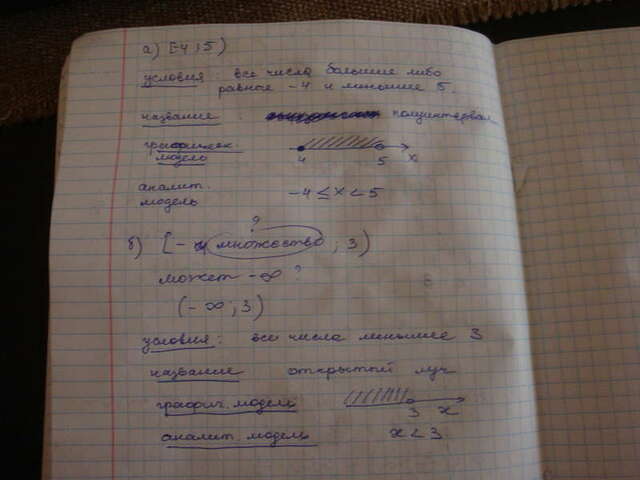 а) [-4 ; 5)
условия : все числа большие либо
равные -4 и меньшие 5.
название : полуинтервал
графическ.
модель
4 5 x
аналит.
модель -4 ≤ x < 5
?
б) [- множество ; 3)
может -∞ ?
(-∞ ; 3)
условия : все числа меньшие 3
название открытый луч
графич. модель
3 x
аналит. модель x < 3